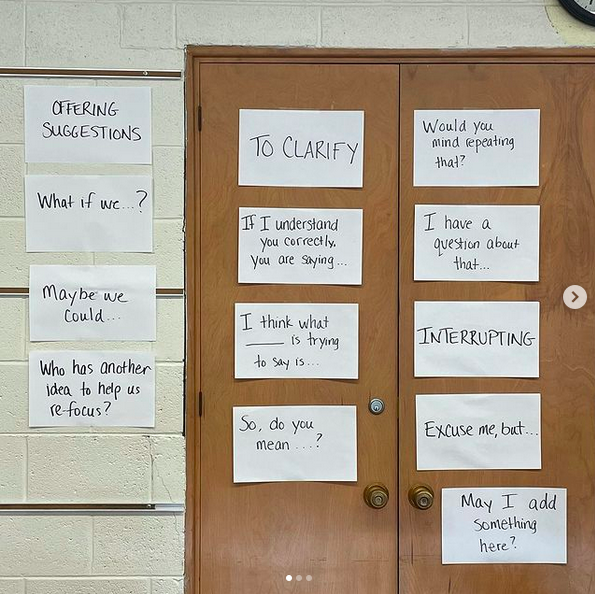 OFFERING
SUGGESTIONS
What if we...?
Maybe we
Could...
Who has another
idea to help us
re-focus?
TO CLARIFY
If I understand
you correctly,
you are saying...
I think what
____ is trying
to say is...
So, do you
mean ....?
Would you
mind repeating
that?
I have a
question about
that...
INTERRUPTING
Excuse me, but...
May I add
something
here?